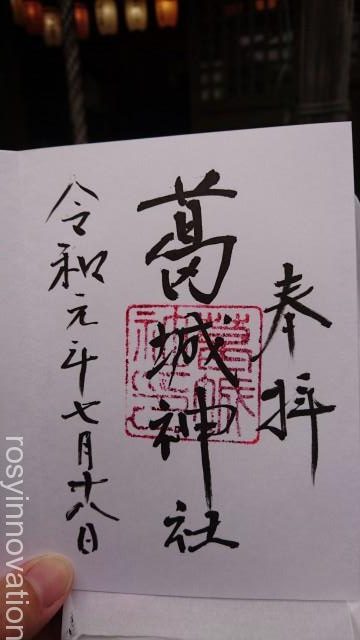 奉拝
葛城神社
令和元年七月廿八日
葛城
神社
rosyinnovation